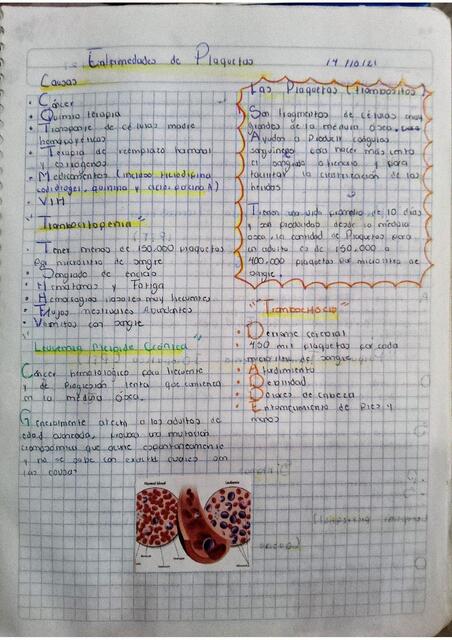 Enfermedades de Plaquetas
14/10/21
Causas
• Cáncer
• Quimio terapia
• Transporte de células madre
hematopoyéticas
• Terapia de reemplazo hormonal
• Estrógenos
• Medicamentos (incluso
clopidogrel, quinina y ciclosporina A)
• VIH
"Trombocitopenia"
• Tener menos de 150.000 plaquetas
por microlitro de sangre
• Sangrado de encias
• Hematomas y Fatiga
• Hemorragias nasales muy frecuentes
• Flujos mestruales Abundantes
• Vomitos con sangre
"Leucemia Mieloide Crónica"
Cáncer hematológico poco frecuente
y de Progresión lenta que comienza
en la médula ósea.
Generalmente afecta a los adultos de
edad avanzada, provoca una mutación
cromosómica que ocurre espontaneamente
y no se sabe con exactitud cuales son
las causas
Las Plaquetas (trombocitos)
Son fragmentos de células muy
grandes de la médula ósea,
Ayudan a Producir coágulos
sanguíneos para hacer mas lento
el sangrado o frenarlo y para
facilitar la cicatrización de las
heridas
Tienen una vida promedio de 10 días
y son producidas desde la médula
osea, la cantidad de Plaquetas para
un adulto es de 150.000 a
400.000 plaquetas por microlitro de
sangre.
"Trombocitosis"
• Derrame cerebral
• 450 mil plaquetas por cada
microlitro de sangre
• Aturdimiento
• Debilidad
• Dolores de cabeza
• Entumecimiento de Pies y
manos
Normal blood
Leukemia